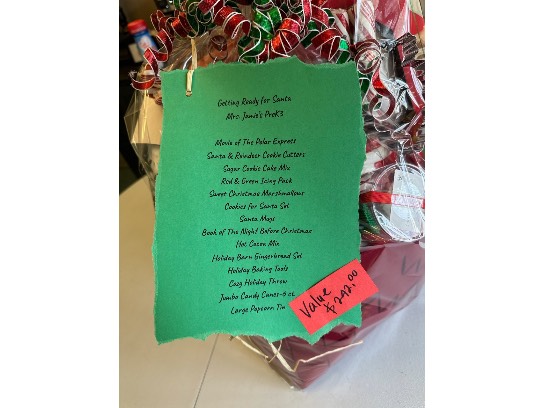 Getting Ready for Santa
Mrs. Janie's PreK3
Movie of The Polar Express
Santa & Reindeer Cookie Cutters
Sugar Cookie Cake Mix
Red & Green Icing Pack
Sweet Christmas Marshmallows
Cookies for Santa Set
Santa Mugs
Book of The Night Before Christmas
Hot Cocoa Mix
Holiday Barn Gingerbread Set
Holiday Baking Tools
Cozy Holiday Throw
Jumbo Candy Canes-6 ct
Large Popcorn Tin
Value
$242.00